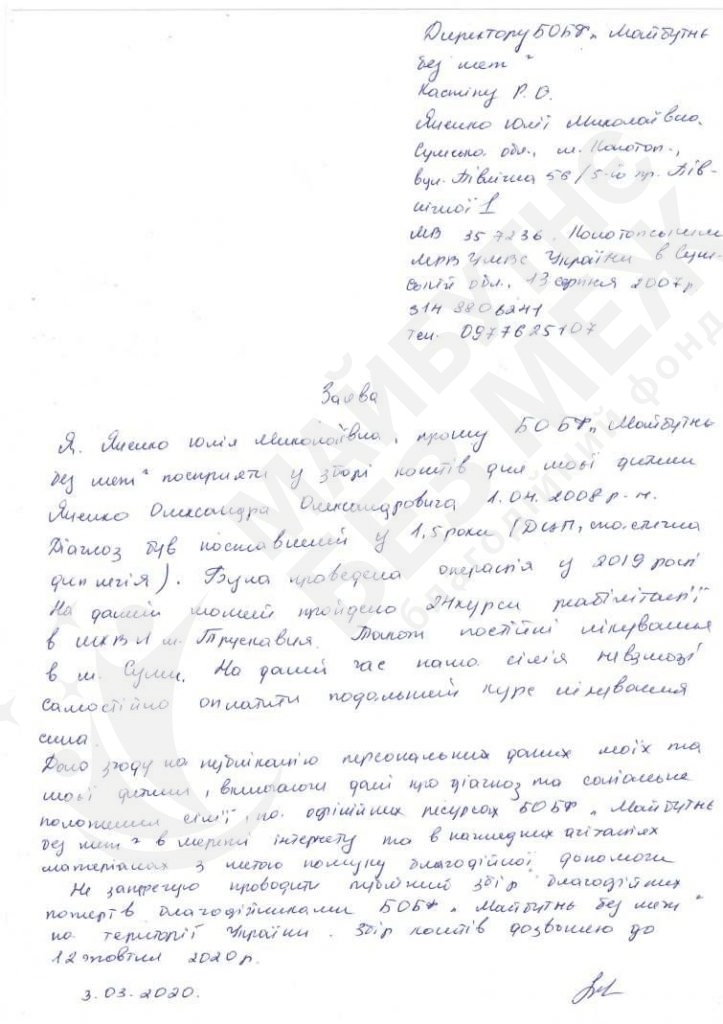 Директору БОБФ „Майбутнь
без меж"
Кастіну Р. О.
Яценко Юлії Миколаївна.
Сумська. обл., м. Конотоп.,
вул. Північна 56/5-ю пр. Пів-
нічної 1
МВ 357236. Конотопським
МРВ УМВС України в Сум-
ській обл., 13 серпня 2007р
3149806241
тел. 0977625107
Заява
Я, Яценко Юлія Миколаївна, прошу БОБФ „Майбутнь
без меж" посприяти у зборі коштів для моєї дитини
Яценко Олександра Олександровича 1.04.2008р.н.
Діагноз був поставлений у 1,5 роки (ДЦП, спастична
диплегія). Була проведена операція у 2019 році
На даний момент пройдено 24 курси реабілітації
в м. Трускавця. Також постійні лікування
в м. Суми. На даний час наша сімія невзмозі
самостійно оплатити подальший курс лікування
сина.
Даю згоду на публікацію персональних даних моїх та
моєї дитини, включаючи дані про діагноз та соціальне
положення сімії, на офіційних ресурсах БОБФ „Майбутнь
без меж" в мережі інтернету та в наглядних агітаціях
матеріалах з метою пошуку благодійної допомоги
Не заперечую проводити публічний збір благодійних
пожертв благодійниками БОБФ „Майбутнь без меж"
на території України. Збір коштів дозволяю до
12 жовтня 2020р.
3.03.2020.
МАЙБУТНЄ
БЕЗ МЕЖ
благодійний фонд